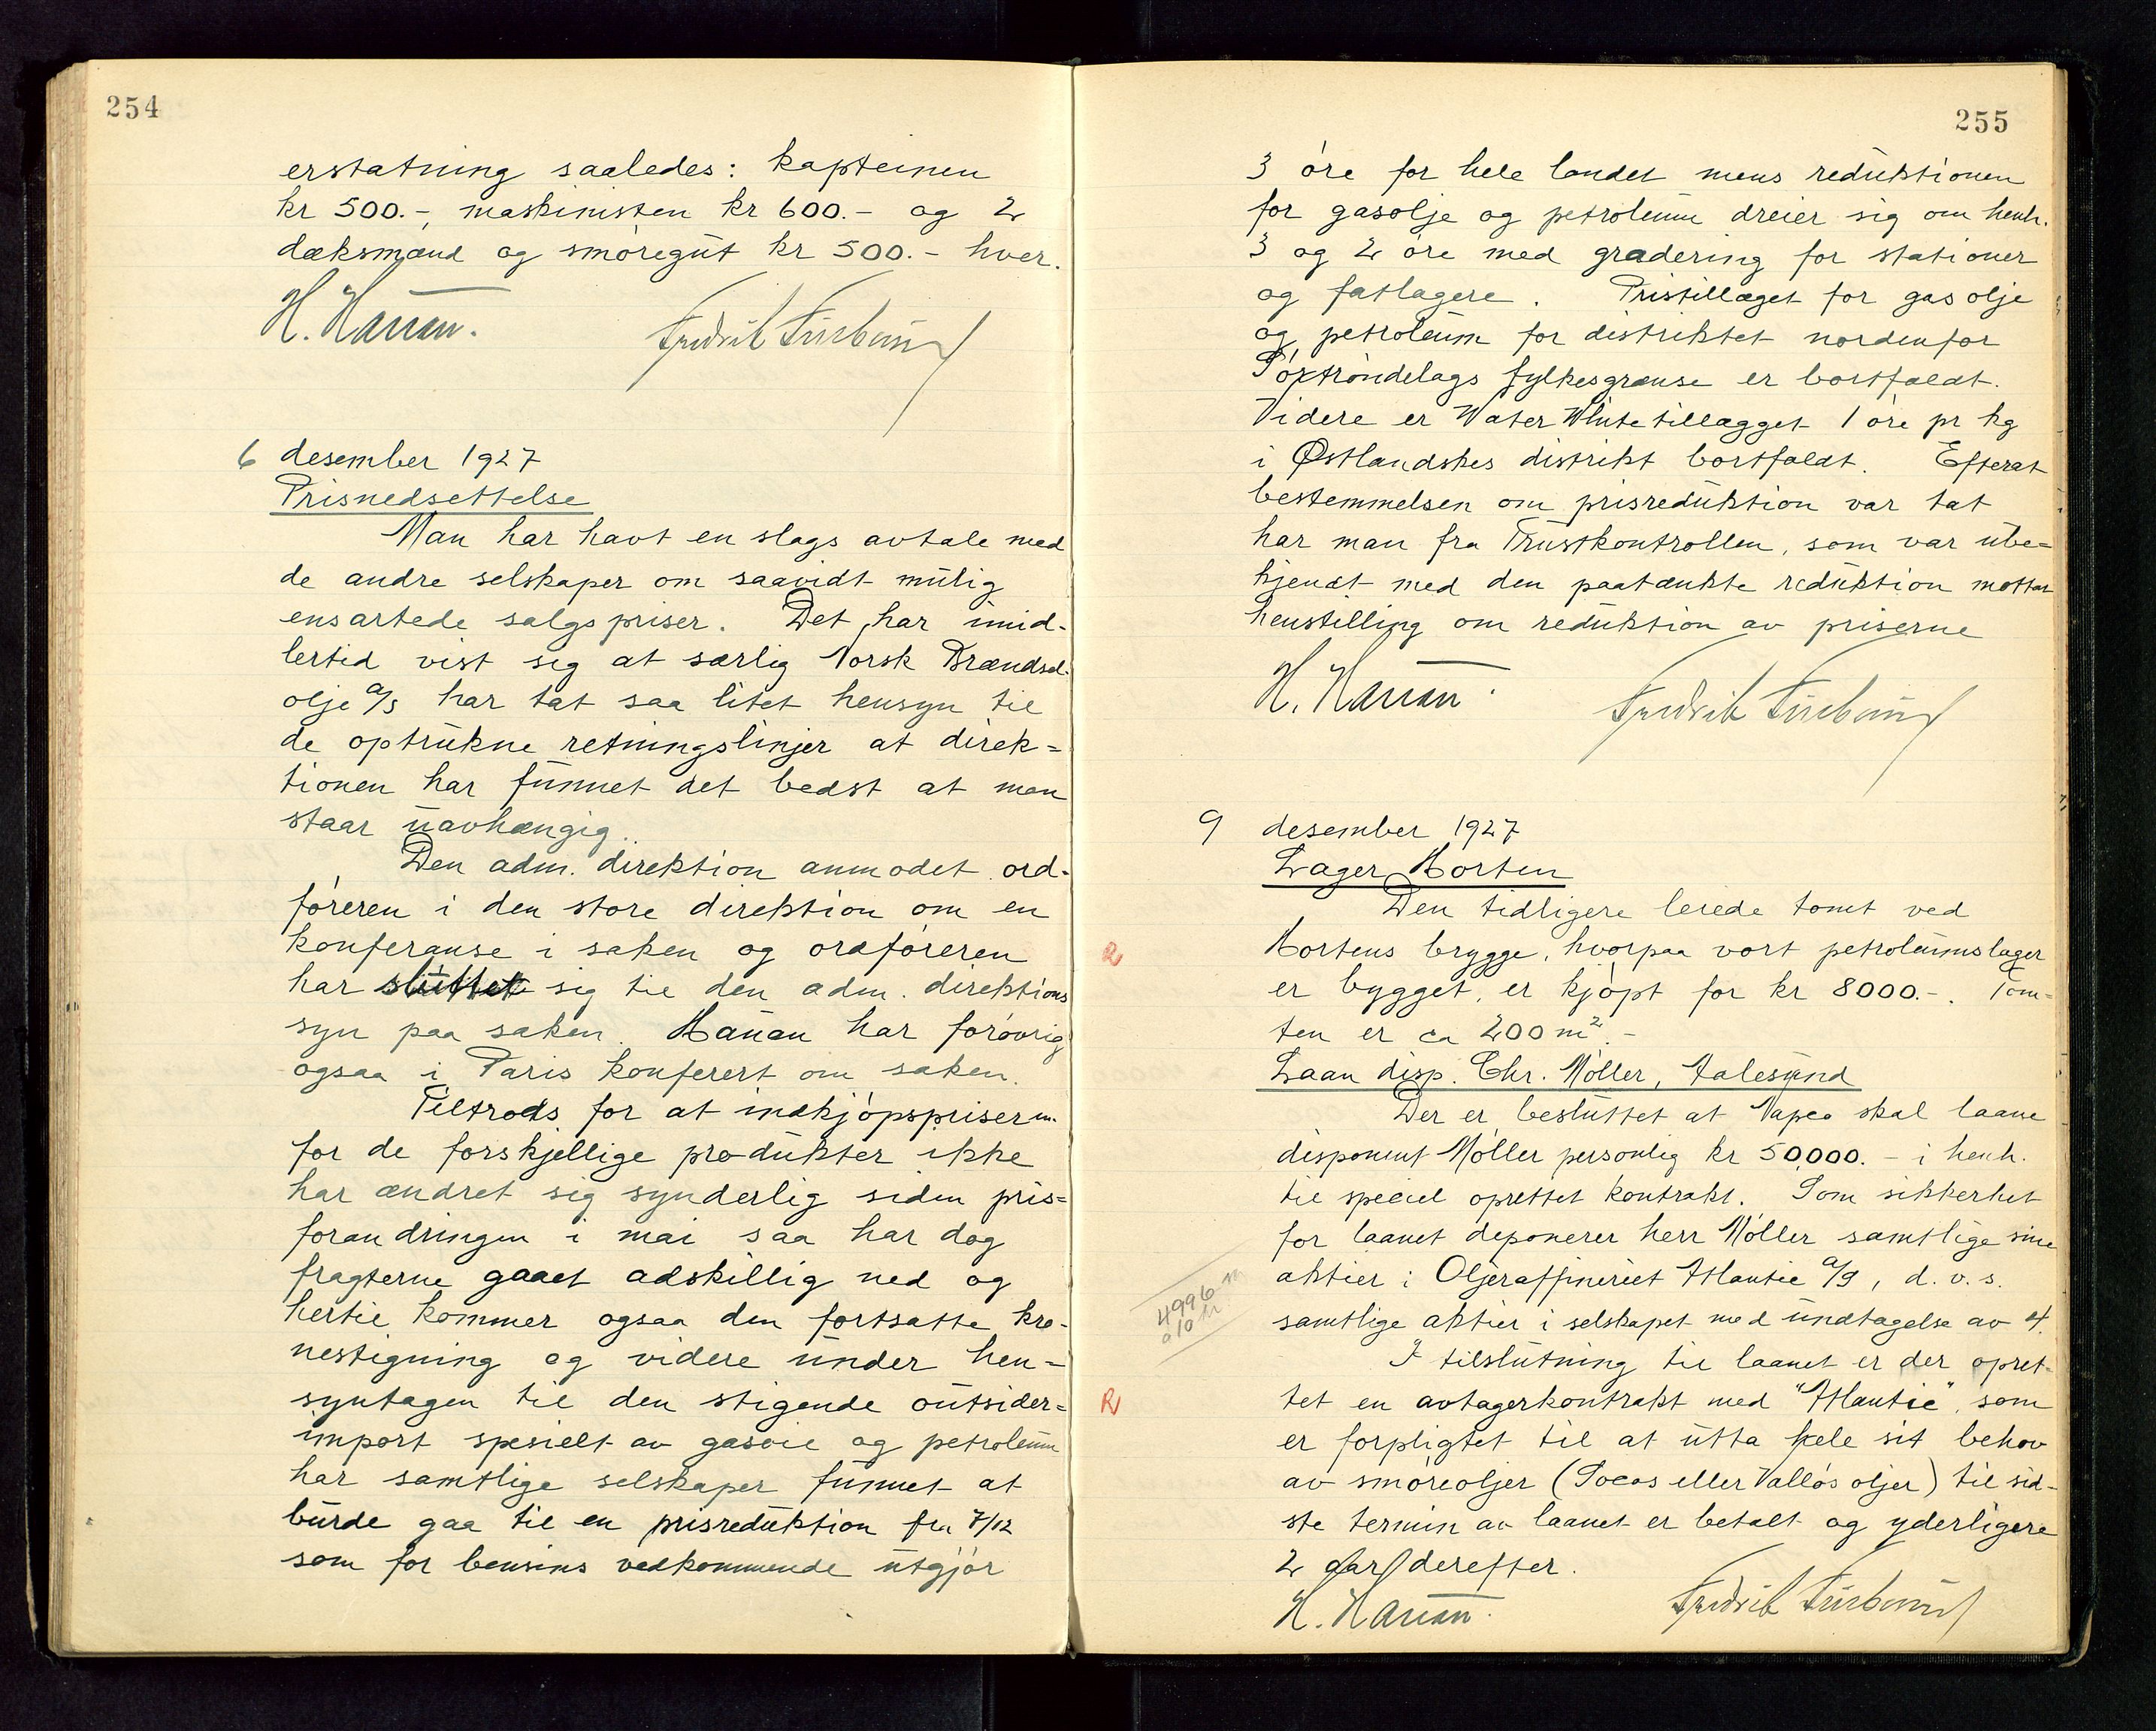 254
erstatning saaledes: kapteinen
kr 500.-, maskinisten kr 600.- og 2
dæksmænd og smøregut kr 500.- hver.
H. Harran.
Fredrik
6 desember 1927
Prisnedsettelse
Man har havt en slags avtale med
de andre selskaper om saavidt mulig
ensartede salgspriser. Det har imid-
lertid vist sig at særlig Norsk Brændsel-
olje A/S har tat saa litet hensyn til
de optrukne retningslinjer at direk=
tionen har funnet det bedst at man
staar uavhængig.
Den adm. direktion anmodet ord-
føreren i den store direktion om en
konferanse i saken og ordføreren
har sluttet sig til den adm. direktions
syn paa saken. Harran har forøvrig
ogsaa i Paris konferert om saken.
Tiltrods for at indkjøpspriserne
for de forskjellige produkter ikke
har ændret sig synderlig siden pris=
forandringen i mai saa har dog
fragterne gaaet adskillig ned og
hertil kommer ogsaa den fortsatte kro-
nestigning og videre under hen-
syntagen til den stigende outsider=
import spesielt av gasoie og petroleum
har samtlige selskaper funnet at
burde gaa til en prisreduktion fra 7/12
som for bensins vedkommende utgjør
255
3 øre for hele landet mens reduktionen
for gasolje og petroleum dreier sig om henh.
3 og 2 øre med gradering for stationer
og fatlagere. Pristillæget for gasolje
og petroleum for distriktet nordenfor
Sørtrøndelags fylkesgrænse er bortfaldt.
Videre er Water White tillægget 1 øre pr kg
i Østlandskes distrikt bortfaldt. Efterat
bestemmelsen om prisreduktion var tat
har man fra Trustkontrollen, som var ube=
kjendt med den paatænkte reduktion mottat
henstilling om reduktion av priserne
H. Harran.
Fredrik
9 desember 1927
Lager Horten
Den tidligere leiede tomt ved
R Hortens brygge, hvorpaa vort petroleumslager
er bygget, er kjøpt for kr 8000.-. Tom-
ten er ca 200 m².-
Laan disp. Chr. Møller, Aalesund
Der er besluttet at Vapco skal laane
disponent Møller personlig kr 50,000.- i henh.
til speciel oprettet kontrakt. Som sikkerhet
for laanet deponerer herr Møller samtlige sine
aktier i Oljeraffineriet Atlantic A/S, d.v.s.
4996
a 10 kr
samtlige aktier i selskapet med undtagelse av 4.
I tilslutning til laanet er der opret-
R tet en avtagerkontrakt med "Atlantic", som
er forpligtet til at utta hele sit behov
av smøreoljer (Socos eller Valløs oljer) til sid-
ste termin av laanet er betalt og yderligere
2 aar derefter.
H. Harran.
Fredrik